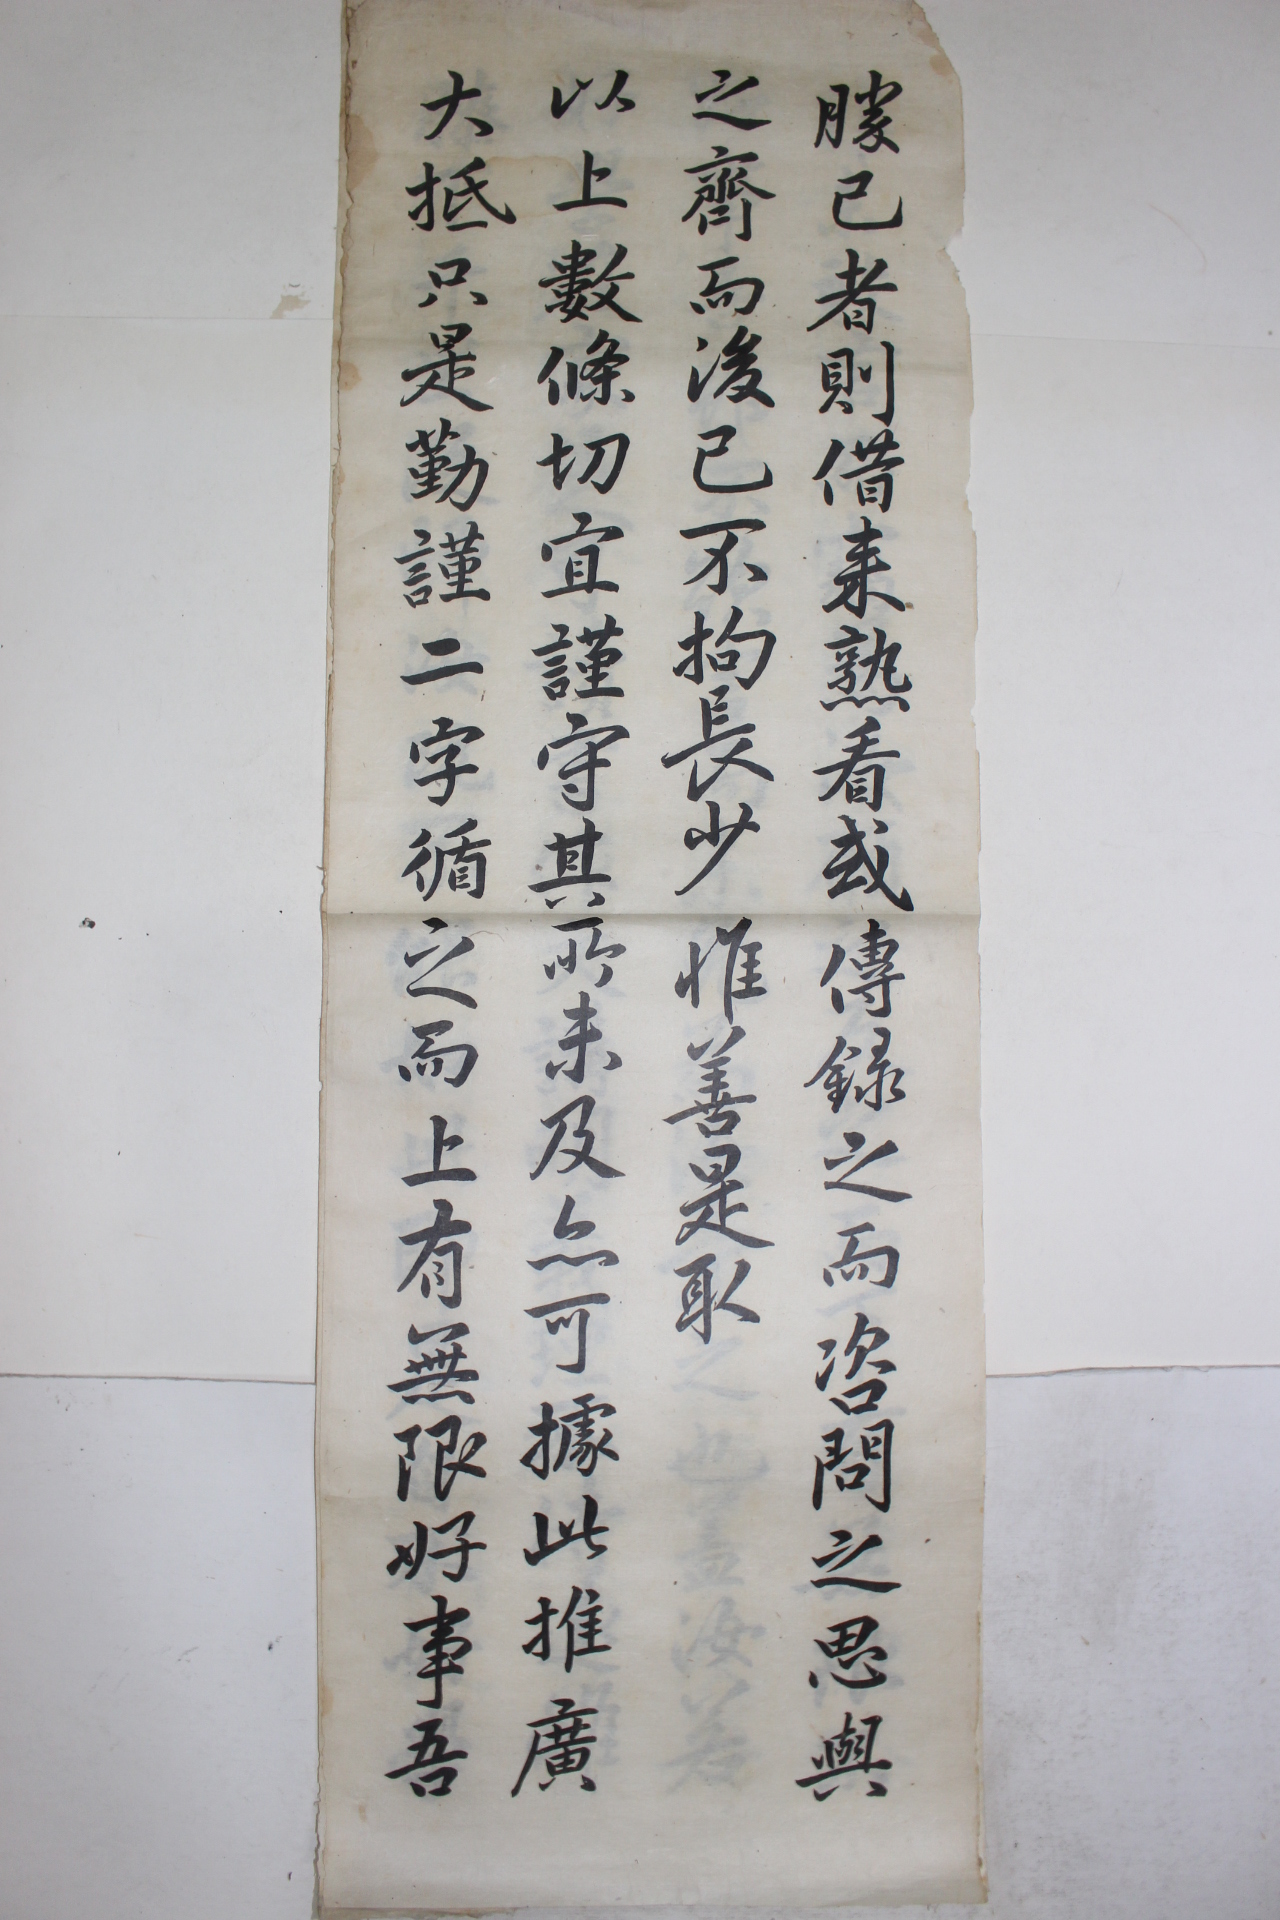 勝己者則借来熟看或傳録之而咨問之思與
之齊而後已不拘長少惟善是取
以上數條切宜謹守其所未及亦可據此推廣
大抵只是勤謹二字循之而上有無限好事吾